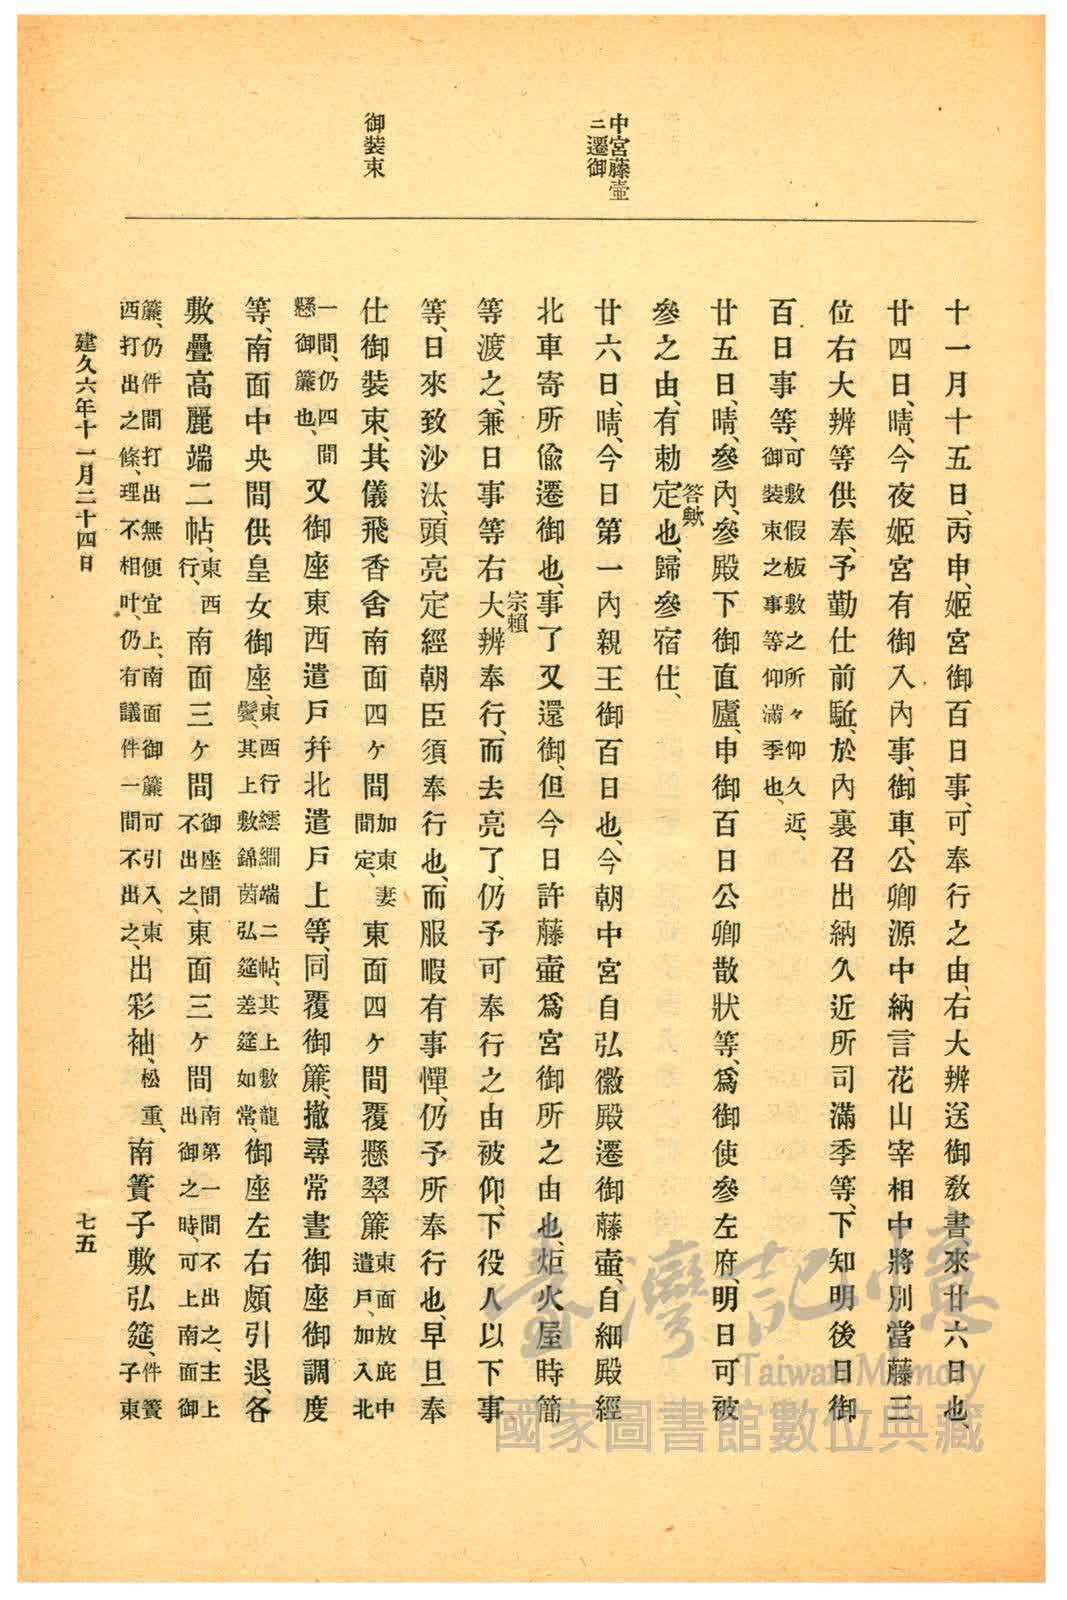 中宮藤壷
ニ遷御
御裝束
十一月十五日、丙申、姬宮御百日事、可奉行之由、右大辨送御敎書來廿六日也、
廿四日、晴、今夜姬宮有御入內事、御車、公卿源中納言花山宰相中將別當藤三
位右大辨等供奉、予勤仕前駈、於內裏召出納久近所司滿季等、下知明後日御
百日事等、可敷假板敷之所々仰久近、
御裝束之事等仰滿季也、
廿五日、晴、參內、參殿下御直廬、申御百日公卿散狀等、爲御使參左府、明日可被
參之由、有勅定也、歸參宿仕、
答歟
廿六日、晴、今日第一內親王御百日也、今朝中宮自弘徽殿遷御藤壷、自細殿經
北車寄所偸遷御也、事了又還御、但今日許藤壷爲宮御所之由也、炬火屋時簡
等渡之、兼日事等右大辨奉行、而去亮了、仍予可奉行之由被仰、下役人以下事
宗賴
等、日來致沙汰、頭亮定經朝臣須奉行也、而服暇有事憚、仍予所奉行也、早旦奉
仕御裝束、其儀飛香舍南面四ヶ間加東妻
間定、東面四ヶ間覆懸翠簾東面放庇中
遣戶、加入北
一間、仍四間
懸御簾也、又御座東西遣戶幷北遣戶上等、同覆御簾、撤尋常晝御座御調度
等、南面中央間供皇女御座、東西行繧繝端二帖、其上敷龍
鬢、其上敷錦茵弘筵差筵如常、御座左右頗引退、各
敷疊高麗端二帖、東西
行、南面三ヶ間御座間
不出之、東面三ヶ間南第一間不出之、主上
出御之時、可上南面御
簾、仍件間打出無便宜上、南面御簾可引入、東
西打出之條、理不相叶、仍有議件一間不出之、出彩袖、松重、南簀子敷弘筵、件簀
子東
建久六年十一月二十四日
七五
臺灣記憶
Taiwan Memory
國家圖書館數位典藏